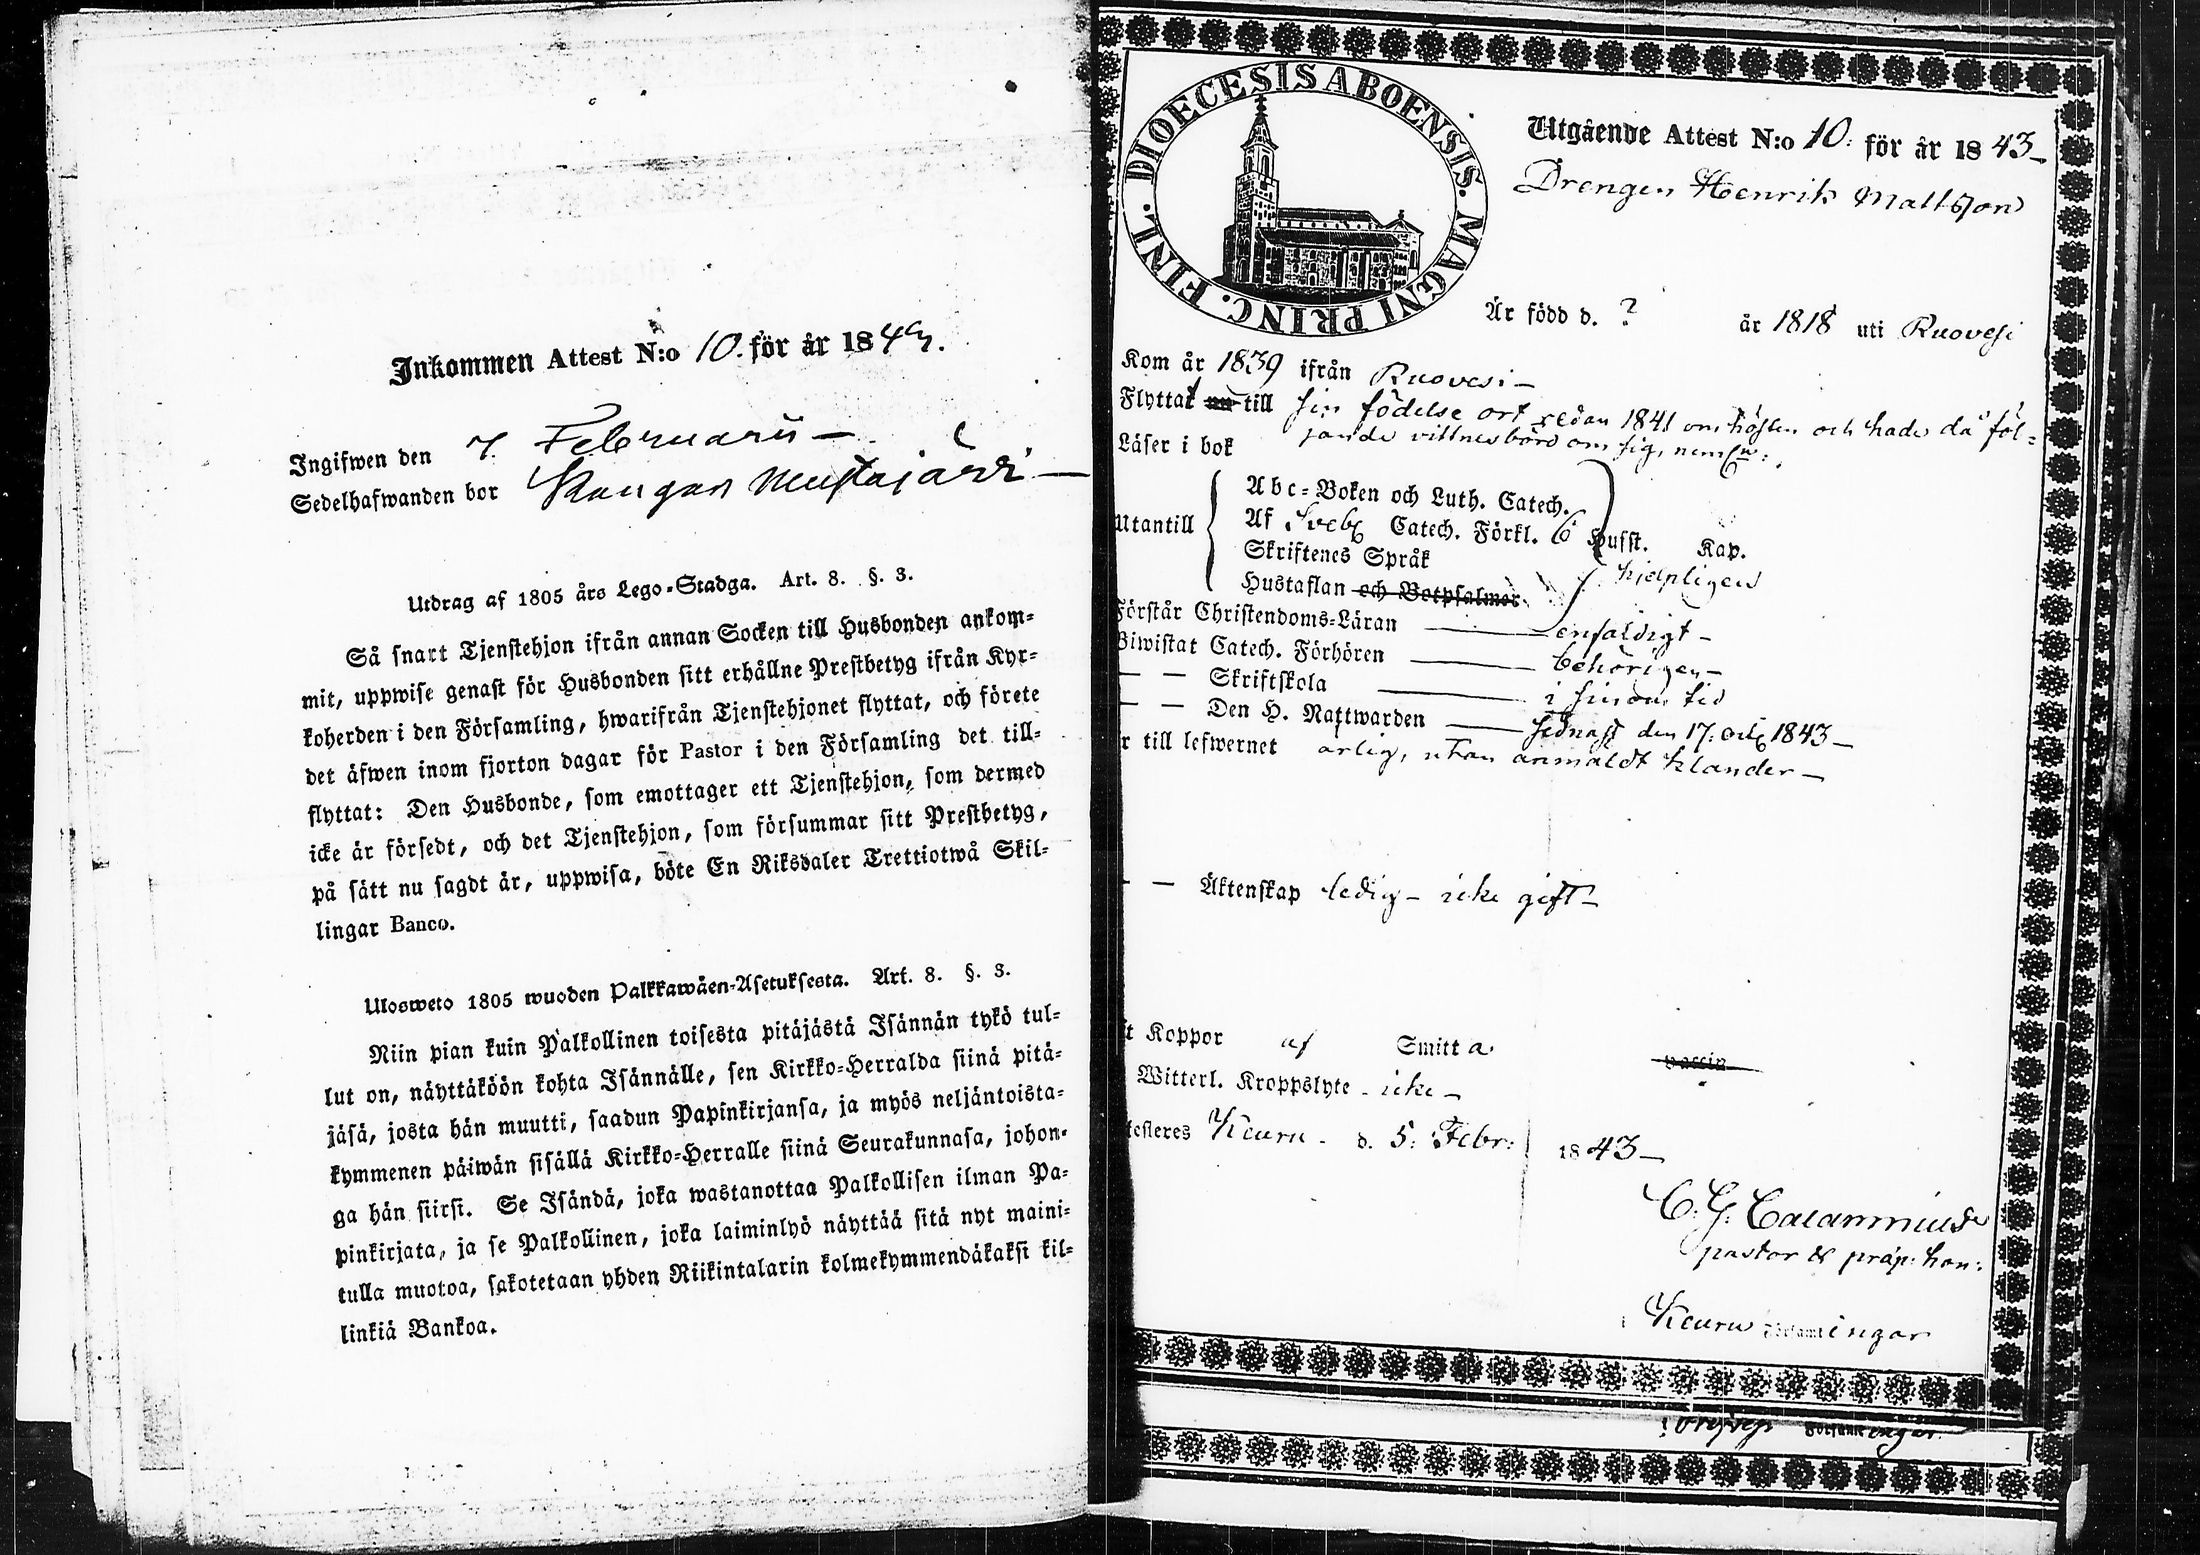 Inkommen Attest N:o 10. för år 184
Ingifwen den 7. Februarii —
Sedelhafwanden bor Mustajärvi —
Utdrag af 1805 års Lego-Stadga. Art. 8. §. 3.
Så snart Tjenstehjon ifrån annan Socken till Husbonden ankom-
mit, uppwise genast för Husbonden sitt erhållne Prestbetyg ifrån Kyr-
koherden i den Församling, hwarifrån Tjenstehjonet flyttat, och förete
det äfwen inom fjorton dagar för Pastor i den Församling det till-
flyttat: Den Husbonde, som emottager ett Tjenstehjon, som dermed
icke är försedt, och det Tjenstehjon, som försummar sitt Prestbetyg,
på sätt nu sagdt är, uppwisa, böte En Riksdaler Trettiotwå Skil-
lingar Banco.
Ulosweto 1805 wuoden Palkkawäen-Asetuksesta. Art. 8. §. 3.
Niin pian kuin Palkollinen toisesta pitäjästä Isännän tykö tul-
lut on, näyttäköön kohta Isännälle, sen Kirkko-Herralda siinä pitä-
jäsä, josta hän muutti, saadun Papinkirjansa, ja myös neljäntoista-
kymmenen päiwän sisällä Kirkko-Herralle siinä Seurakunnasa, johon-
ga hän siirsi. Se Isändä, joka wastanottaa Palkollisen ilman Pa-
pinkirjata, ja se Palkollinen, joka laiminlyö näyttää sitä nyt maini-
tulla muotoa, sakotetaan yhden Riikintalarin kolmekymmendäkaksi kil-
linkiä Bankoa.
DIOECESIS ABOENSIS. MAGNI PRINC. FINL.
Utgående Attest N:o 10. för år 1843 —
Drengen Henrik Mattsson
Är född d. ? år 1818 uti Ruovesi
Kom år 1839 ifrån Ruovesi —
Flyttat nu till sin födelse ort sedan 1841 om hösten och hade då föl=
jande vittnesbörd om sig, neml:
Läser i bok
Utantill
Abc-Boken och Luth. Catech.
Af Sveb Catech. Förkl. 6 Hufst. Kap.
Skriftenes Språk
Hustaflan och Botpsalmer hjelpligen
Förstår Christendoms-Läran — enfaldigt —
Biwistat Catech. Förhören — behörigen —
— — Skriftskola — i sinom tid
— — Den H. Nattwarden — sednast den 17: 1843 —
r till lefwernet ärlig, utan anmäldt klander —
— — Äktenskap ledig — icke gift —
t Koppor af Smitta vaccin
Witterl. Kroppslyte - icke —
testeres Keuru - d. 5. Febr: 1843 —
C. G. Calamnius
pastor & præp: hon:
Keuru Församlingar
Församlingar